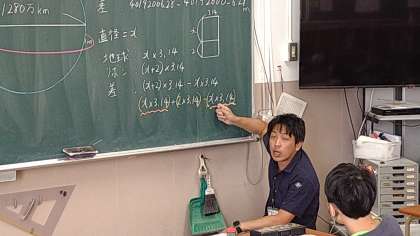 12800km
差 40192006.28 - 40192000 = 6.28m
3.14
直径 = x
地球 x×3.14
(x+2)×3.14
2
差 (x+2)×3.14 - x×3.14
(x×3.14)+(2×3.14)-(x×3.14)